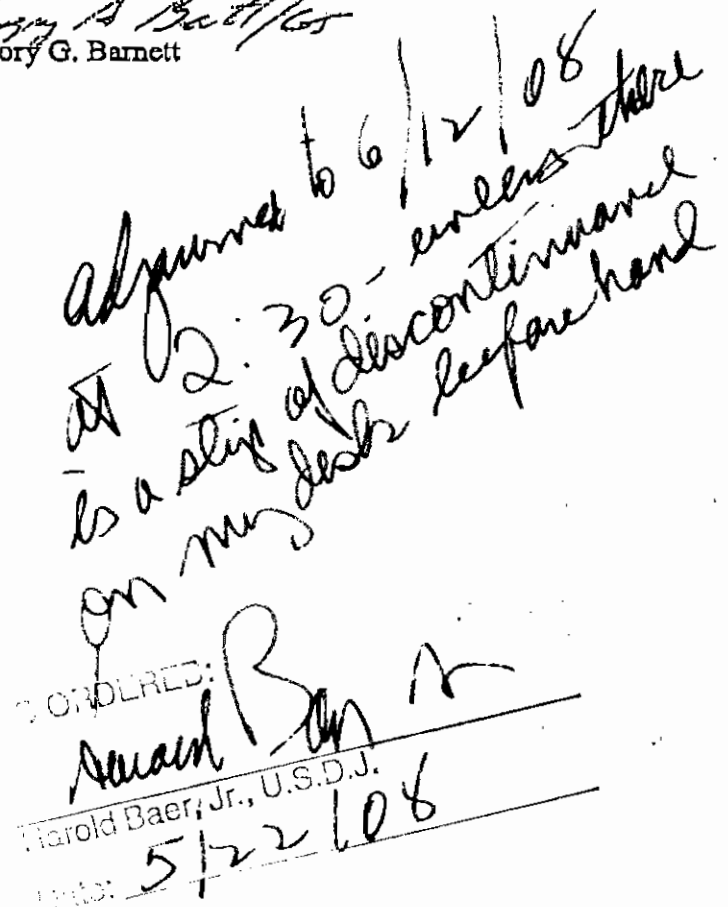 ory G. Barnett
adjourned to 6/12/08
at 2:30 - unless there
is a stip of discontinuance
on my desk beforehand
ORDERED:
Harold Baer Jr
Harold Baer, Jr., U.S.D.J.
Date: 5/22/08